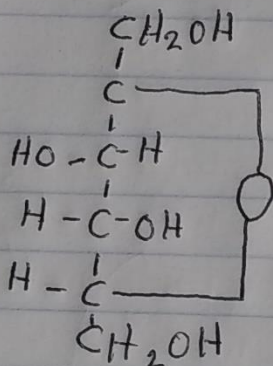 CH₂OH
C
HO-C-H
H-C-OH
O
H-C
CH₂OH